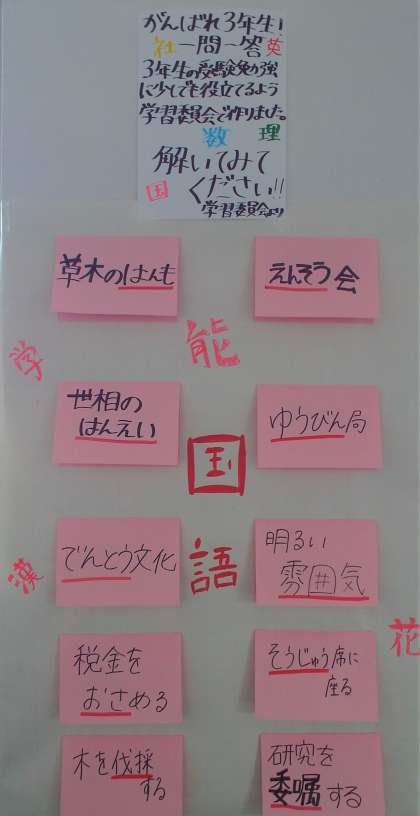 がんばれ3年生!
社一問一答英
3年生の受験勉強
に少しでも役立てるよう
学習委員会で作りました。
数 理
解いてみて
国 ください!!
学習委員会より
草木のはんも
えんそう会
学
能
世相の
はんえい
ゆうびん局
国
でんとう文化
語
明るい
雰囲気
漢
花
税金を
おさめる
そうじゅう席に
座る
木を伐採
する
研究を
委嘱する